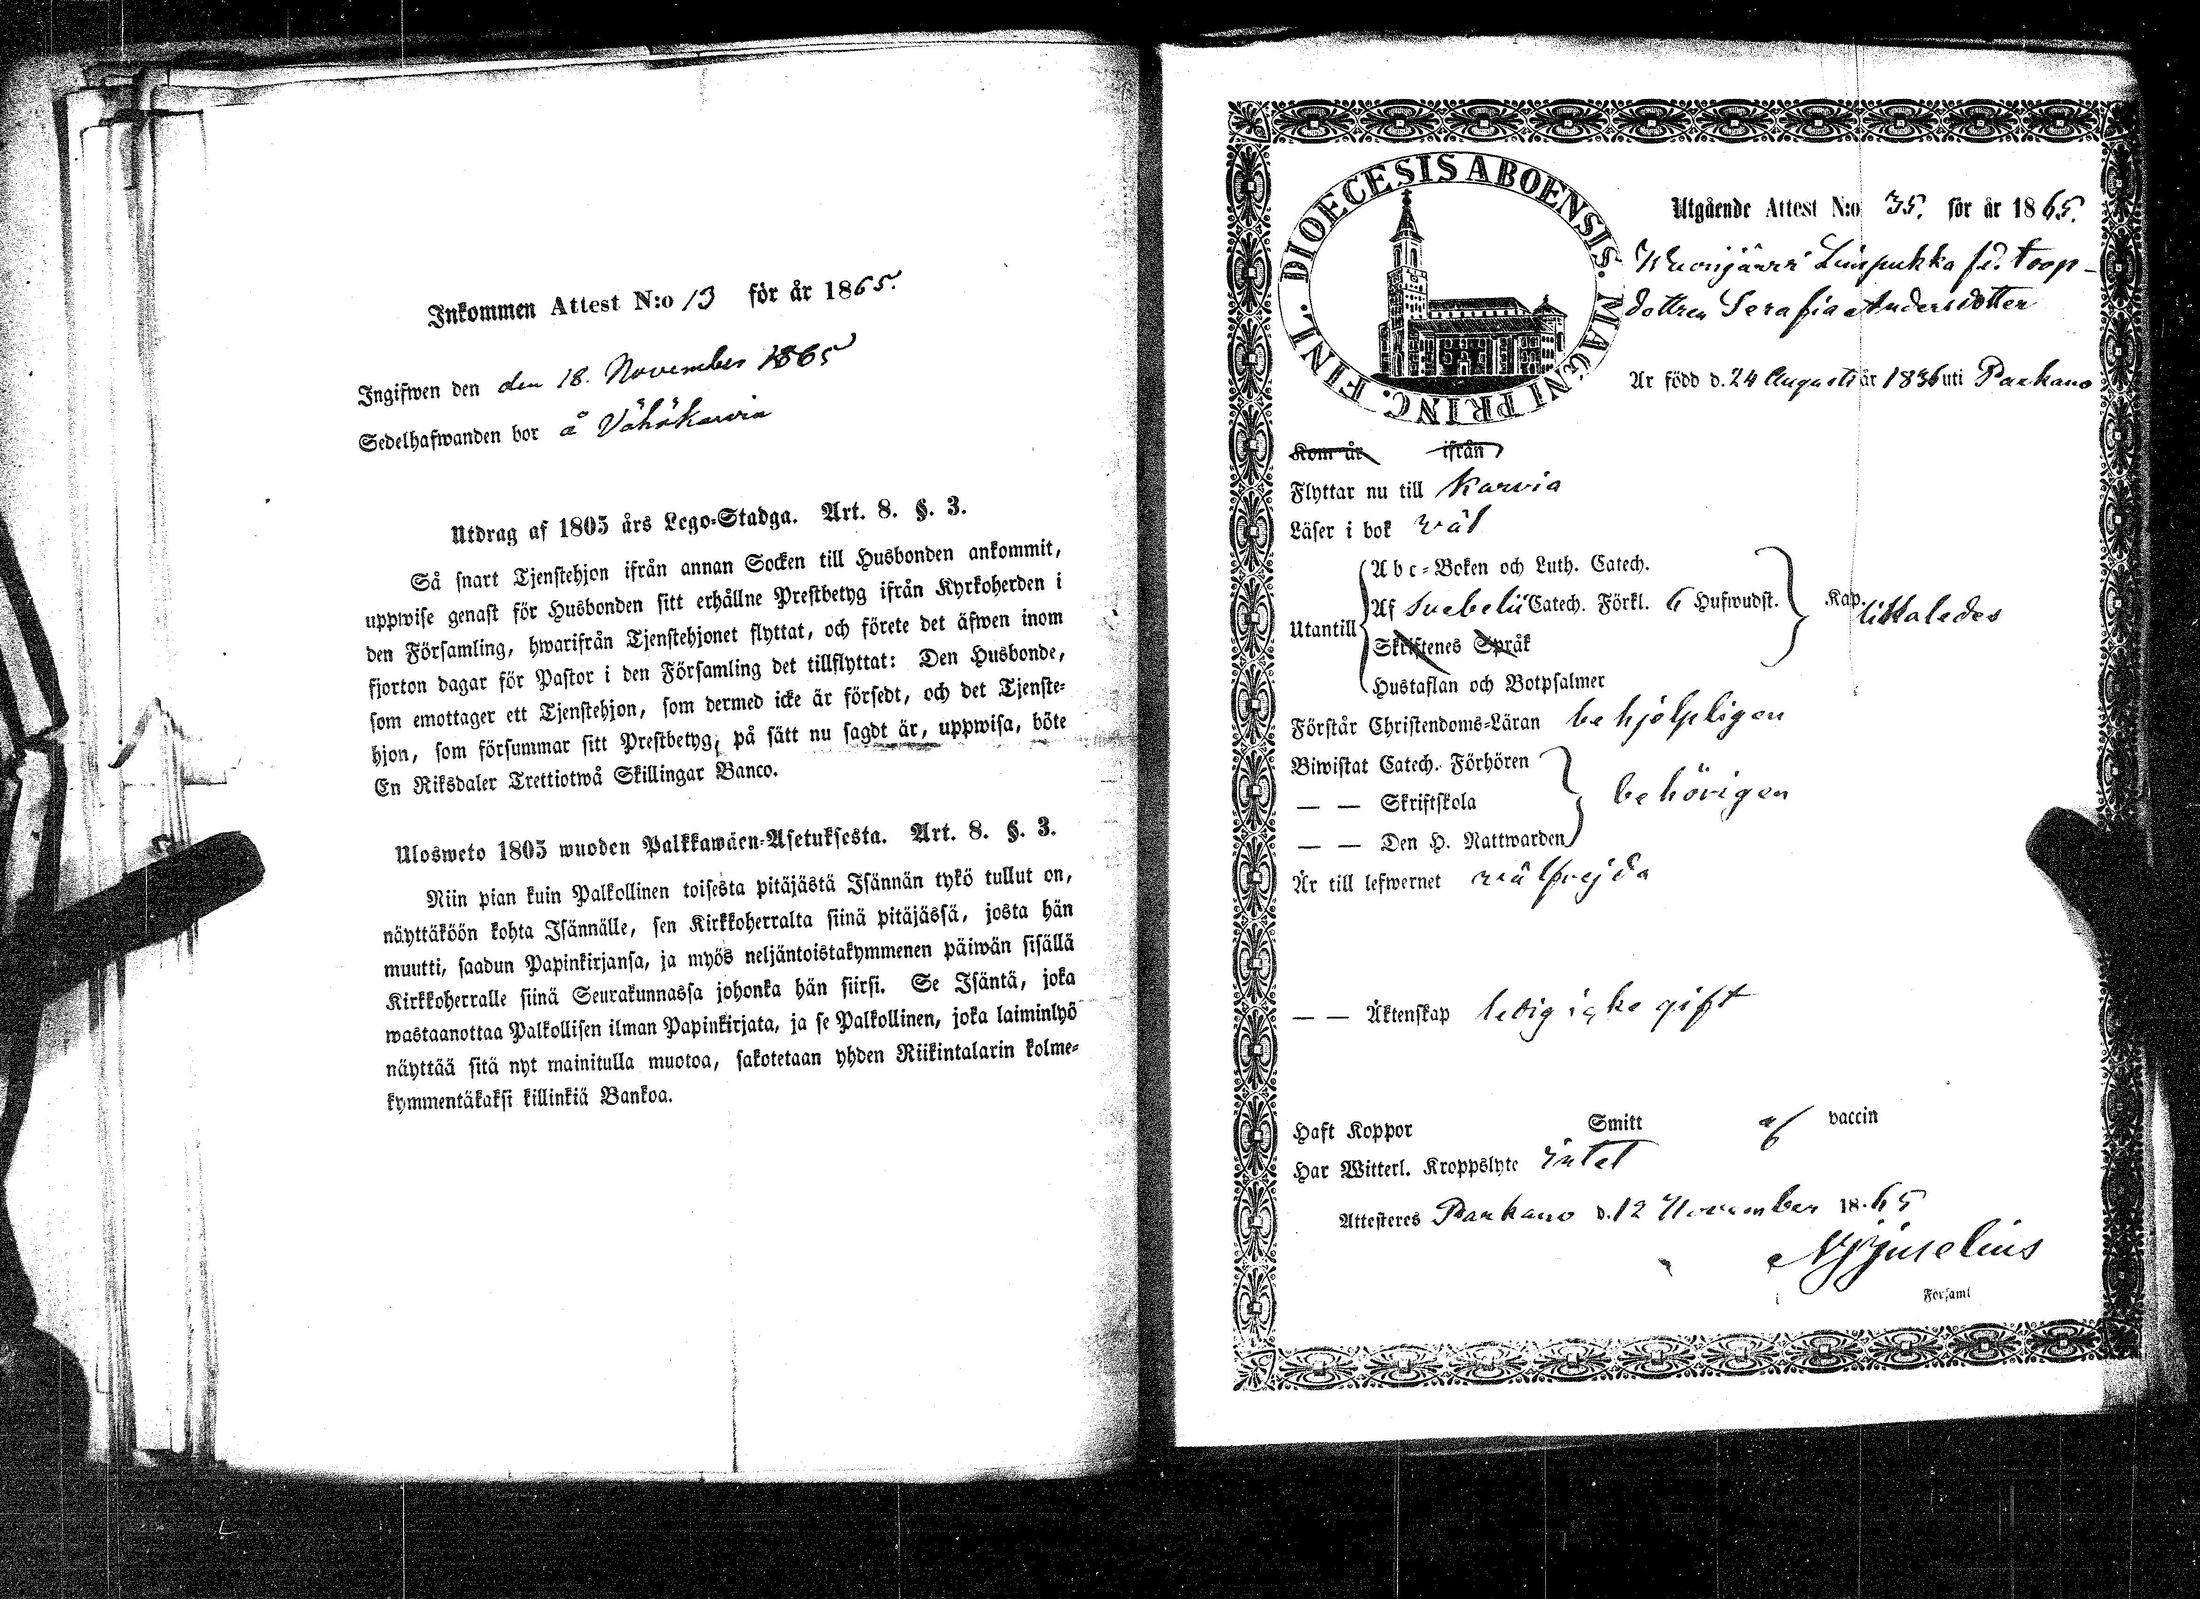 Inkommen Attest N:o 13 för år 1865.
Ingifwen den den 18. November 1865
Sedelhafwanden bor å Vähäkarvia
Utdrag af 1805 års Lego-Stadga. Art. 8. §. 3.
Så snart Tjenstehjon ifrån annan Socken till Husbonden ankommit,
uppwise genast för Husbonden sitt erhållne Prestbetyg ifrån Kyrkoherden i
den Församling, hwarifrån Tjenstehjonet flyttat, och förete det äfwen inom
fjorton dagar för Pastor i den Församling det tillflyttat: Den Husbonde,
som emottager ett Tjenstehjon, som dermed icke är försedt, och det Tjenste-
hjon, som försummar sitt Prestbetyg, på sätt nu sagdt är, uppwisa, böte
En Riksdaler Trettiotwå Skillingar Banco.
Ulosweto 1805 wuoden Palkkawäen-Asetuksesta. Art. 8. §. 3.
Niin pian kuin Palkollinen toisesta pitäjästä Isännän tykö tullut on,
näyttäköön kohta Isännälle, sen Kirkkoherralta siinä pitäjässä, josta hän
muutti, saadun Papinkirjansa, ja myös neljäntoistakymmenen päiwän sisällä
Kirkkoherralle siinä Seurakunnassa johonka hän siirsi. Se Isäntä, joka
wastaanottaa Palkollisen ilman Papinkirjata, ja se Palkollinen, joka laiminlyö
näyttää sitä nyt mainitulla muotoa, sakotetaan yhden Riikintalarin kolme-
kymmentäkaksi killinkiä Bankoa.
DIOECESIS ABOENSIS. MAGNI PRINC. FINL.
Utgående Attest N:o 35. för år 1865.
Wuorijärvi Linspukka fd. torp-
dottren Serafia Andersdotter
Är född d. 24 Augusti år 1836 uti Parkano
Kom år ifrån
Flyttar nu till Karvia
Läser i bok väl
Utantill
Abc-Boken och Luth. Catech.
Af Svebelii Catech. Förkl. 6 Hufwudst. Kap. likaledes
Skriftenes Språk
Hustaflan och Botpsalmer
Förstår Christendoms-Läran behjelpligen
Biwistat Catech. Förhören
— — Skriftskola behörigen
— — Den H. Nattwarden
Är till lefwernet välfrejda
— — Äktenskap ledig icke gift
Haft Koppor Smitt af vaccin
Har Witterl. Kroppslyte intet
Attesteres Parkano d. 12 November 1865
Församl